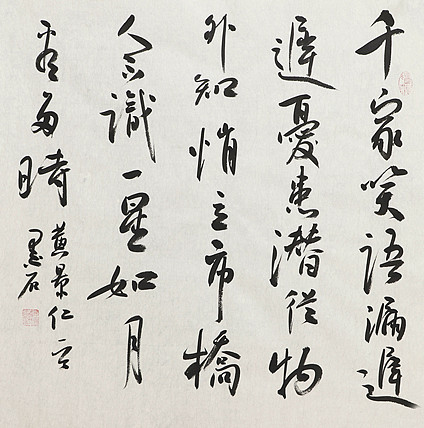 千家笑語漏遲
遲憂患潛從物
外知悄立市橋
人不識一星如月
看多時
黄景仁
墨石